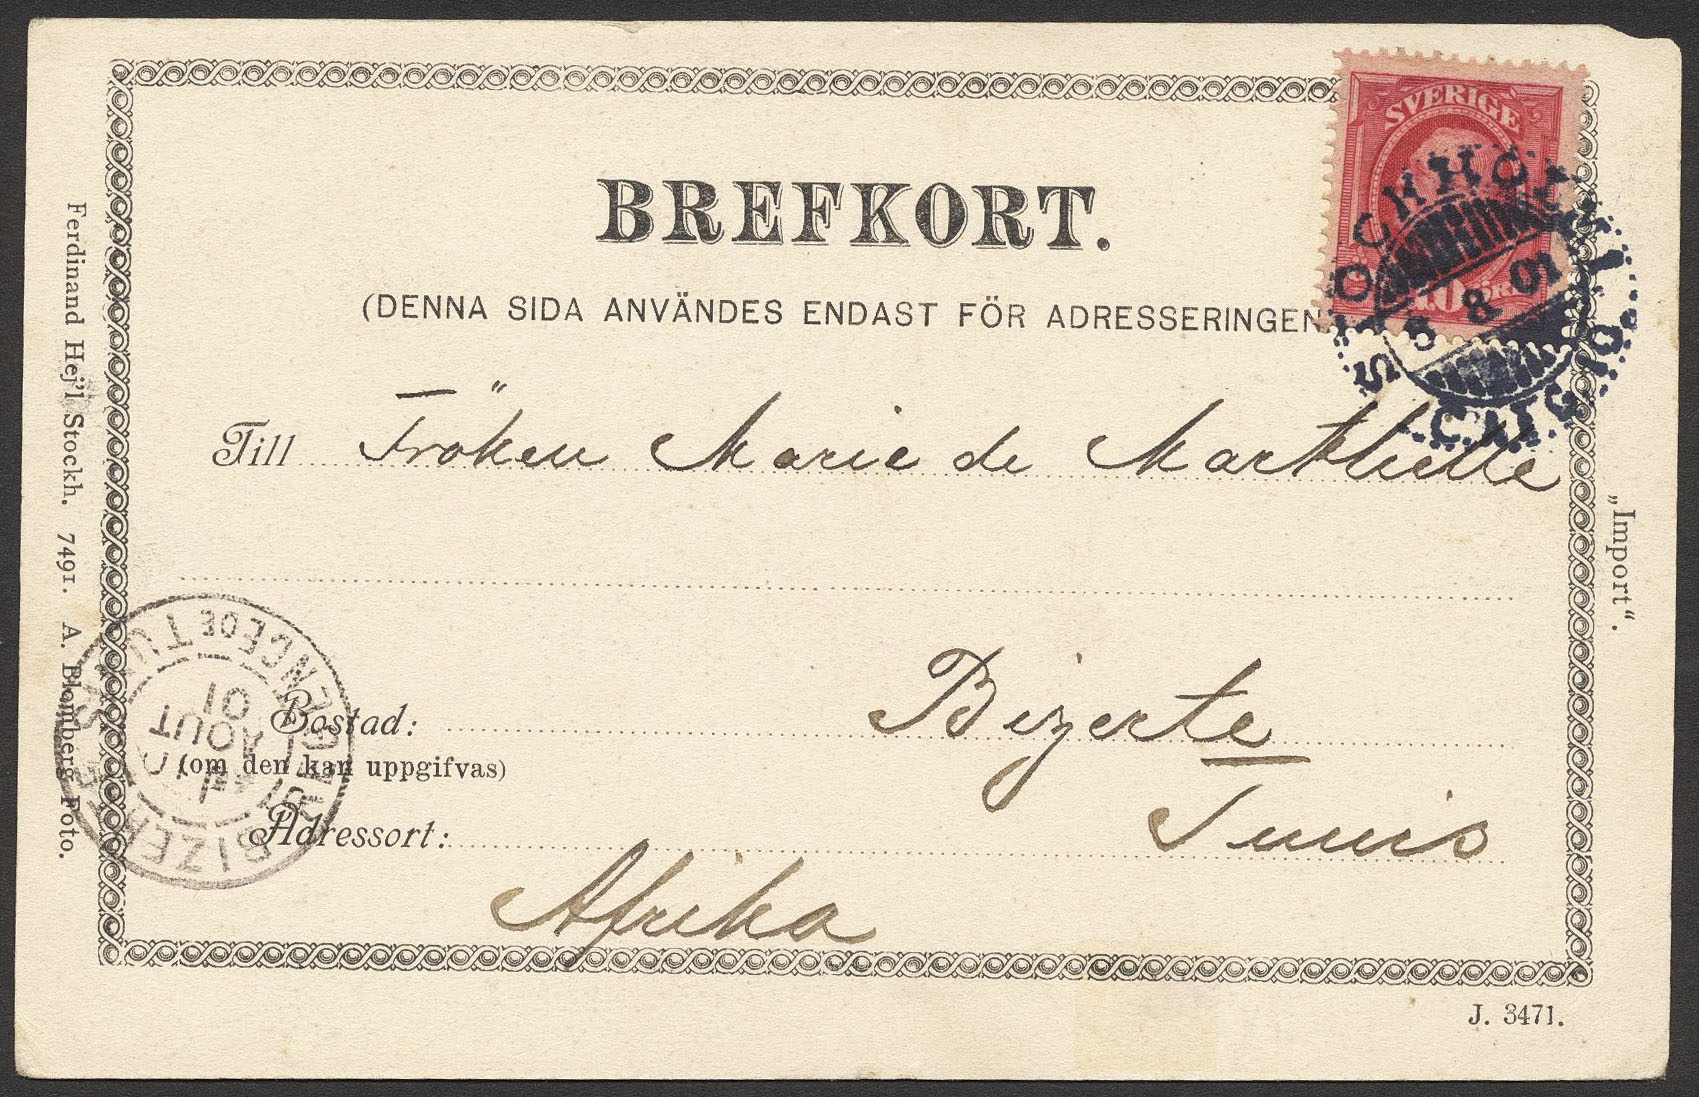 SVERIGE
10 ÖRE
STOCKHOLM
5 8 01
BREFKORT.
(DENNA SIDA ANVÄNDES ENDAST FÖR ADRESSERINGEN
Till Fröken Marie de
Postad: Bizerte
(om den kan uppgifvas)
Adressort: Tunis
Afrika
BIZERTE
REGENCE DE TUNIS
10 AOUT
01
Ferdinand Hej'l Stockh. 7491. A. Blomberg Foto.
„Import“.
J. 3471.